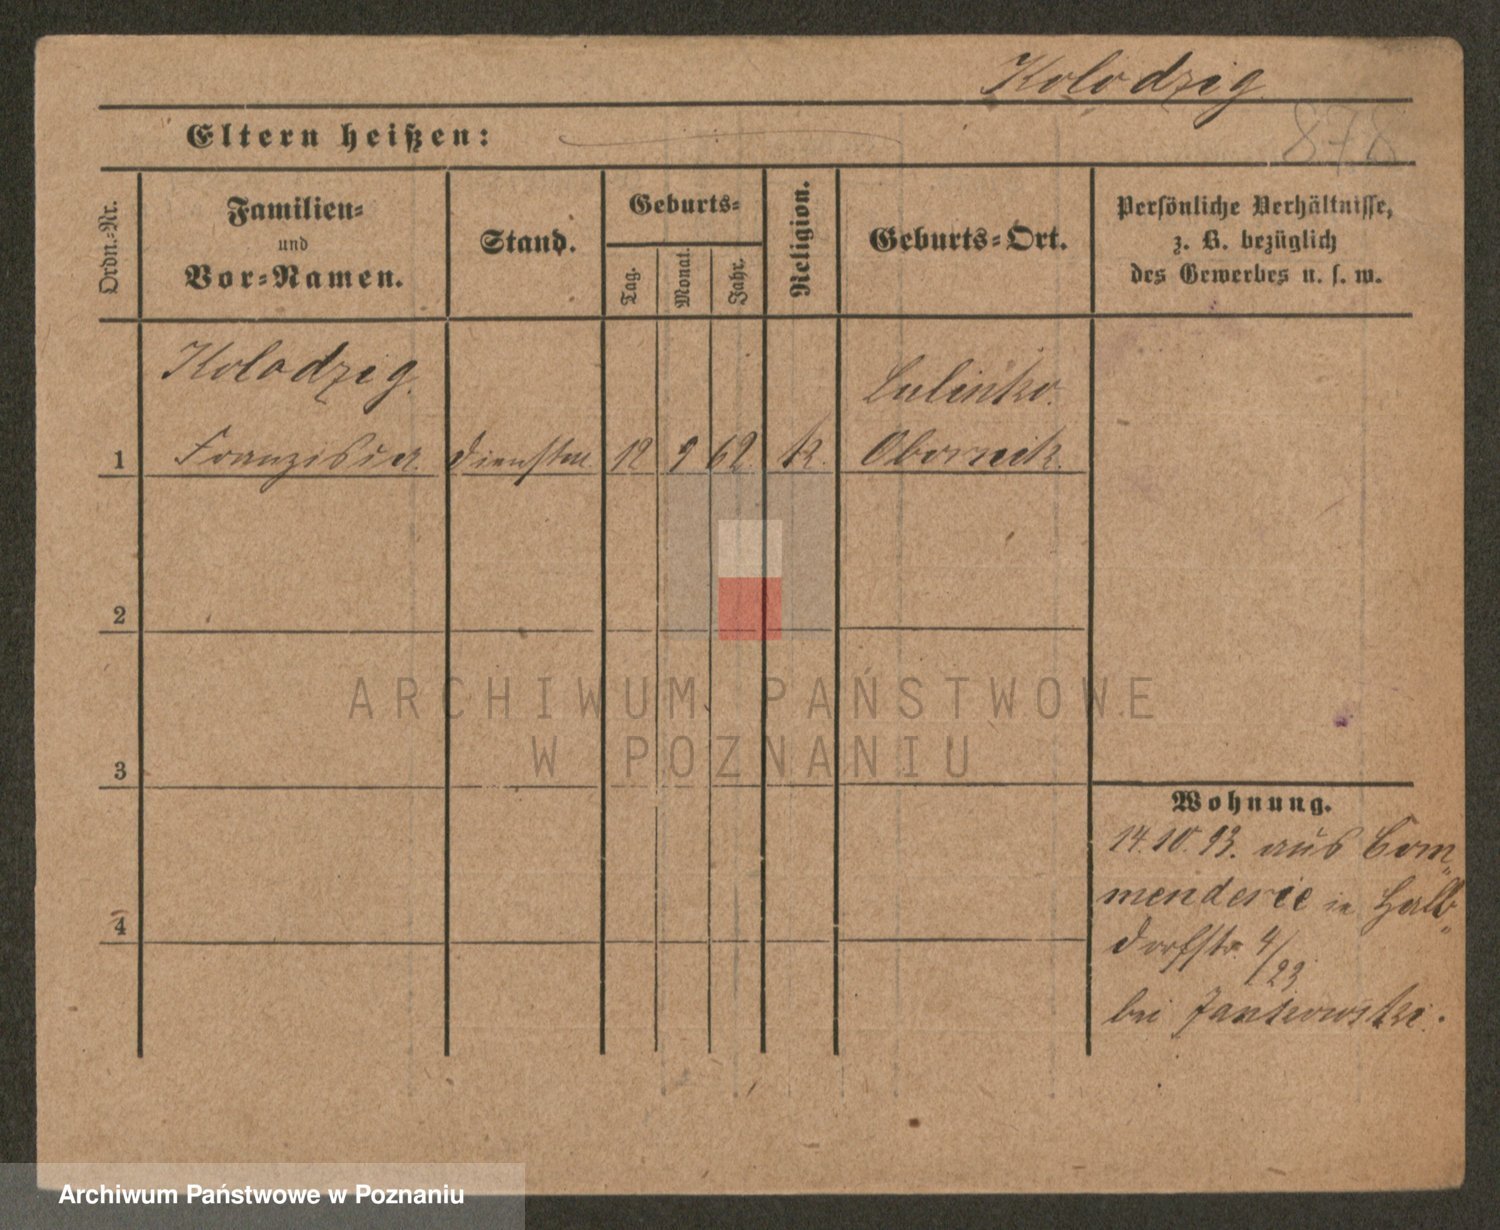 Kolodzig
878
Eltern heißen:
Ordn.-Nr.
Familien-
und
Vor-Namen.
Stand.
Geburts-
Tag.
Monat.
Jahr.
Religion.
Geburts-Ort.
Persönliche Verhältnisse,
z. B. bezüglich
des Gewerbes u. s. w.
Kolodzig.
Lulinko.
1 Franziska 12 9 62. k. Obornik.
2
3
4
Wohnung.
14.10.93. aus Com-
menderie in Halb-
dorfstr. 4/23
bei Jankowski.
ARCHIWUM PAŃSTWOWE
W POZNANIU
Archiwum Państwowe w Poznaniu